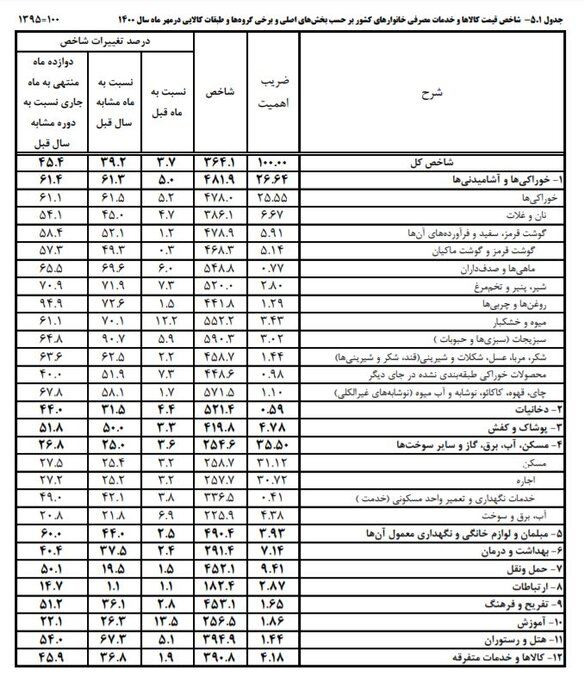 جدول ۵.۱- شاخص قیمت کالاها و خدمات مصرفی خانوارهای کشور بر حسب بخش‌های اصلی و برخی گروه‌ها و طبقات کالایی درمهر ماه سال ۱۴۰۰ ۱۳۹۵=۱۰۰
شرح ضریب اهمیت شاخص درصد تغییرات شاخص
نسبت به ماه قبل نسبت به ماه مشابه سال قبل دوازده ماه منتهی به ماه جاری نسبت به دوره مشابه سال قبل
شاخص کل ۱۰۰.۰۰ ۳۶۴.۱ ۳.۷ ۳۹.۲ ۴۵.۴
۱- خوراکی‌ها و آشامیدنی‌ها ۲۶.۶۴ ۴۸۱.۹ ۵.۰ ۶۱.۳ ۶۱.۴
خوراکی‌ها ۲۵.۵۵ ۴۷۸.۰ ۵.۲ ۶۱.۵ ۶۱.۱
نان و غلات ۶.۶۷ ۳۸۶.۱ ۴.۷ ۴۵.۰ ۵۴.۱
گوشت قرمز، سفید و فرآورده‌های آن‌ها ۵.۹۱ ۴۷۸.۹ ۱.۲ ۵۲.۱ ۵۸.۴
گوشت قرمز و گوشت ماکیان ۵.۱۴ ۴۶۸.۳ ۰.۳ ۴۹.۳ ۵۷.۳
ماهی‌ها و صدف‌داران ۰.۷۷ ۵۴۸.۸ ۶.۰ ۶۹.۶ ۶۵.۵
شیر، پنیر و تخم‌مرغ ۲.۸۰ ۵۲۰.۰ ۷.۳ ۷۱.۹ ۷۰.۹
روغن‌ها و چربی‌ها ۱.۲۹ ۴۴۱.۸ ۱.۵ ۷۲.۶ ۹۴.۹
میوه و خشکبار ۳.۴۳ ۵۵۲.۲ ۱۲.۲ ۷۰.۱ ۶۱.۱
سبزیجات (سبزی‌ها و حبوبات ) ۳.۰۲ ۵۹۰.۳ ۵.۹ ۹۰.۷ ۶۴.۸
شکر، مربا، عسل، شکلات و شیرینی(قند، شکر و شیرینی‌ها) ۱.۴۴ ۴۵۸.۷ ۲.۲ ۶۲.۵ ۶۳.۶
محصولات خوراکی طبقه‌بندی نشده در جای دیگر ۰.۹۸ ۴۴۸.۶ ۷.۳ ۵۱.۹ ۴۰.۰
چای، قهوه، کاکائو، نوشابه و آب میوه (نوشابه‌های غیرالکلی) ۱.۱۰ ۵۷۱.۵ ۱.۷ ۵۸.۱ ۶۷.۸
۲- دخانیات ۰.۵۹ ۵۲۱.۴ ۴.۴ ۳۱.۵ ۴۴.۰
۳- پوشاک و کفش ۴.۷۸ ۴۱۹.۸ ۳.۳ ۵۰.۰ ۵۱.۸
۴- مسکن، آب، برق، گاز و سایر سوخت‌ها ۳۵.۵۰ ۲۵۴.۶ ۳.۶ ۲۵.۰ ۲۶.۸
مسکن ۳۱.۱۲ ۲۵۸.۷ ۳.۲ ۲۵.۴ ۲۷.۵
اجاره ۳۰.۷۲ ۲۵۷.۷ ۳.۲ ۲۵.۲ ۲۷.۲
خدمات نگهداری و تعمیر واحد مسکونی (خدمت ) ۰.۴۱ ۳۳۶.۵ ۳.۸ ۴۲.۱ ۴۹.۰
آب، برق و سوخت ۴.۳۸ ۲۲۵.۹ ۶.۹ ۲۱.۸ ۲۰.۸
۵- مبلمان و لوازم خانگی و نگهداری معمول آن‌ها ۳.۹۳ ۴۹۰.۴ ۲.۵ ۴۴.۰ ۶۰.۰
۶- بهداشت و درمان ۷.۱۴ ۲۹۱.۴ ۲.۴ ۳۷.۵ ۴۰.۴
۷- حمل ونقل ۹.۴۱ ۴۵۲.۱ ۱.۵ ۱۹.۵ ۵۰.۱
۸- ارتباطات ۲.۸۷ ۱۸۲.۴ ۱.۱ ۱.۱ ۱۴.۷
۹- تفریح و فرهنگ ۱.۶۵ ۴۵۳.۱ ۲.۸ ۳۶.۱ ۵۱.۲
۱۰- آموزش ۱.۸۶ ۲۵۶.۵ ۱۳.۵ ۲۶.۳ ۲۲.۱
۱۱- هتل و رستوران ۱.۴۴ ۳۹۴.۹ ۵.۱ ۶۷.۳ ۵۴.۰
۱۲- کالاها و خدمات متفرقه ۴.۱۸ ۳۹۰.۸ ۱.۹ ۳۶.۸ ۴۵.۹